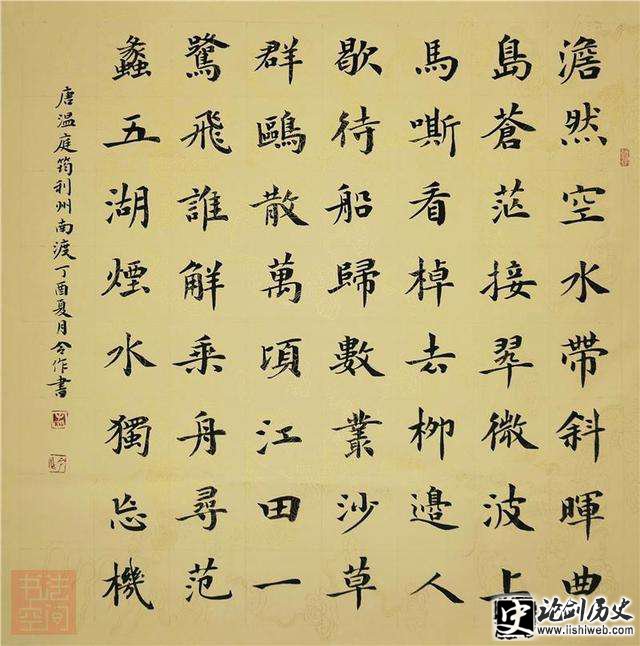 澹然空水帶斜暉曲
島蒼茫接翠微波上
馬嘶看棹去柳邊人
歇待船歸數叢沙草
群鷗散萬頃江田一
鷺飛誰解乘舟尋范
蠡五湖煙水獨忘機
唐温庭筠利州南渡丁酉夏月令作書
书法空间
史 论剑历史
www.iishiweb.com